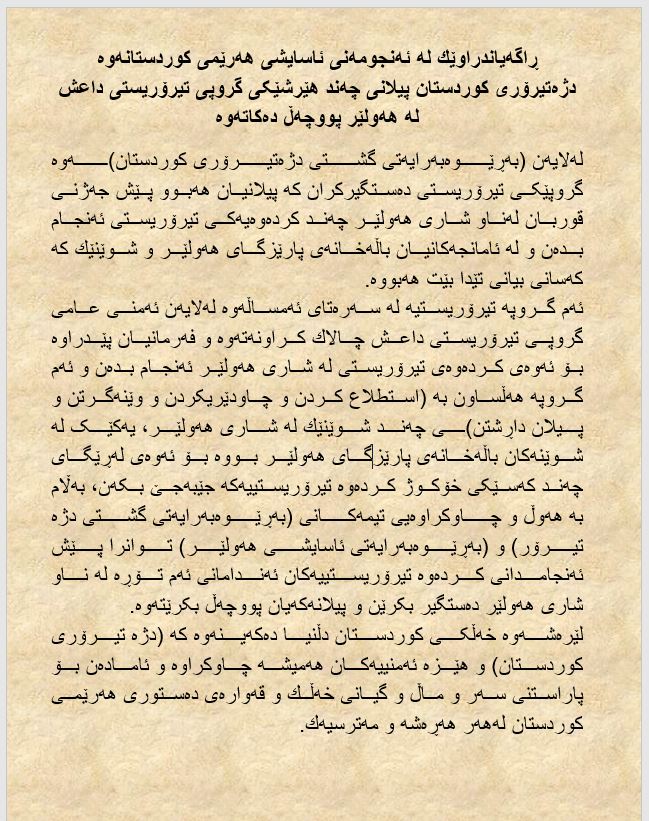 ڕاگەیاندراوێك لە ئەنجومەنی ئاسایشی هەرێمی کوردستانەوە
دژەتیرۆری کوردستان پیلانی چەند هێرشێکی گروپی تیرۆریستی داعش
لە هەولێر پووچەڵ دەکاتەوە
لەلایەن (بەڕێوەبەرایەتی گشتی تیرۆری کوردستان)ەوە
گروپێکی تیرۆریستی دەستگیرکران کە پیلانیان هەبوو پێش جەژنی
قوربان لەناو شاری هەولێر چەند کردەوەیەکی تیرۆریستی ئەنجام
بدەن و لە ئامانجەکانیان باڵەخانەی پارێزگای هەولێر و شوێنێك کە
کەسانی بیانی تێدا بێت هەبووە.
ئەم گروپە تیرۆریستیە لە سەرەتای ئەمساڵەوە لەلایەن ئەمنی عامی
گروپی تیرۆریستی داعش چالاك کراونەتەوە و فەرمانیان پێدراوە
بۆ ئەوەی کردەوەی تیرۆریستی لە شاری هەولێر ئەنجام بدەن و ئەم
گروپە هەڵساون بە (استطلاع کردن و چاودێریکردن و وێنەگرتن و
پیلان داڕشتن)ی چەند شوێنێك لە شاری هەولێر، یەکێک لە
شوێنەکان باڵەخانەی پارێزگای هەولێر بووە بۆ ئەوەی لەڕێگای
چەند کەسێکی خۆکوژ کردەوە تیرۆریستییەکە جێبەجێ بکەن، بەڵام
بە هەوڵ و چاوکراوەیی تیمەکانی (بەڕێوەبەرایەتی گشتی دژە
تیرۆر) و (بەڕێوەبەرایەتی ئاسایشی هەولێر) توانرا پێش
ئەنجامدانی کردەوە تیرۆریستییەکان ئەندامانی ئەم تۆڕە لە ناو
شاری هەولێر دەستگیر بکرێن و پیلانەکەیان پووچەڵ بکرێتەوە.
لێرەشەوە خەڵکی کوردستان دڵنیا دەکەینەوە کە (دژە تیرۆری
کوردستان) و هێزە ئەمنییەکان هەمیشە چاوکراوە و ئامادەن بۆ
پاراستنی سەر و ماڵ و گیانی خەڵك و قەوارەی دەستوری هەرێمی
کوردستان لەهەر هەڕەشە و مەترسیەك.